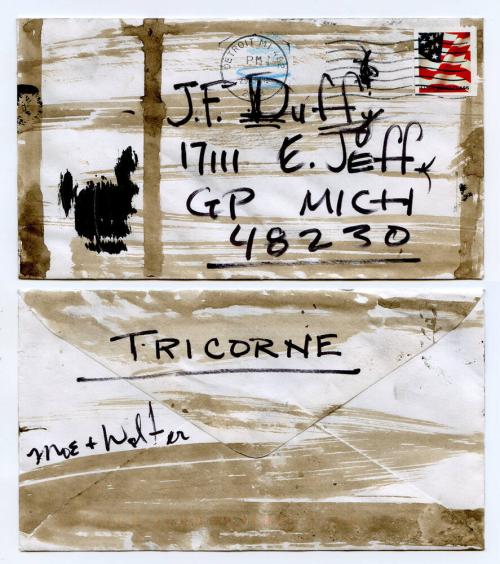 DETROIT MI 482
PM
J.F. Duffy
17111 E. Jeff.
GP MICH
48230
TRICORNE
Moe + Walter